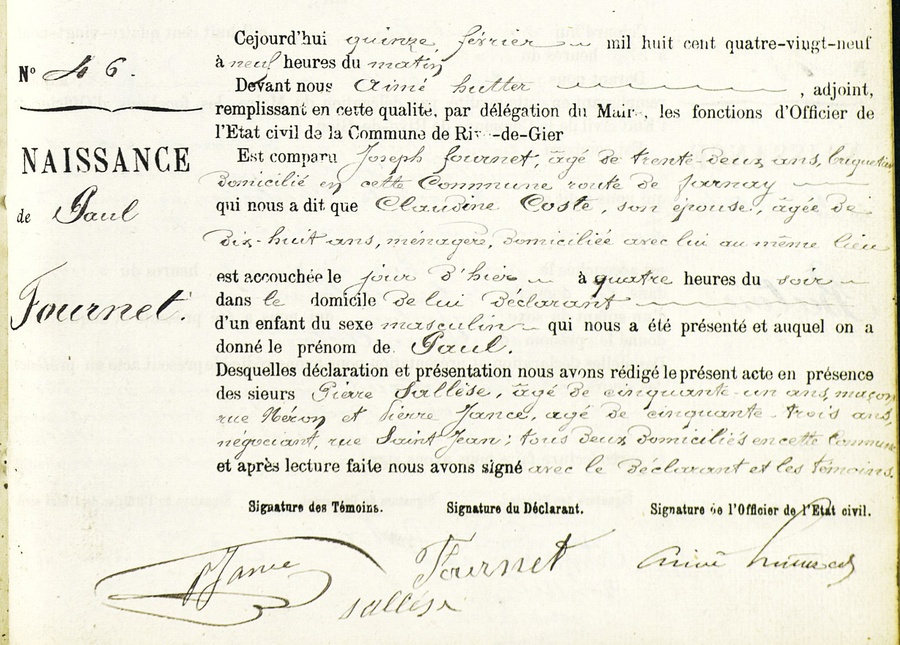 Cejourd'hui quinze février mil huit cent quatre-vingt-neuf
à neuf heures du matin
Nº 46.
Devant nous Aimé hutter, adjoint,
remplissant en cette qualité, par délégation du Maire, les fonctions d'Officier de
l'Etat civil de la Commune de Rive-de-Gier
NAISSANCE
Est comparu Joseph fournet, âgé de trente-deux ans, briquetier
domicilié en cette Commune route de farnay
de Paul
qui nous a dit que Claudine Coste, son épouse, âgée de
dix-huit ans, ménagère, domiciliée avec lui au même lieu
est accouchée le jour d'hier à quatre heures du soir
Fournet.
dans le domicile de lui déclarant
d'un enfant du sexe masculin qui nous a été présenté et auquel on a
donné le prénom de Paul.
Desquelles déclaration et présentation nous avons rédigé le présent acte en présence
des sieurs Pierre Sallèse, âgé de cinquante-un ans, maçon
rue Néron et Pierre Jance, agé de cinquante-trois ans,
négociant, rue Saint Jean; tous deux domiciliés en cette Commune
et après lecture faite nous avons signé avec le déclarant et les témoins.
Signature des Témoins. Signature du Déclarant. Signature de l'Officier de l'Etat civil.
PJance Fournet Aimé
Sallèse